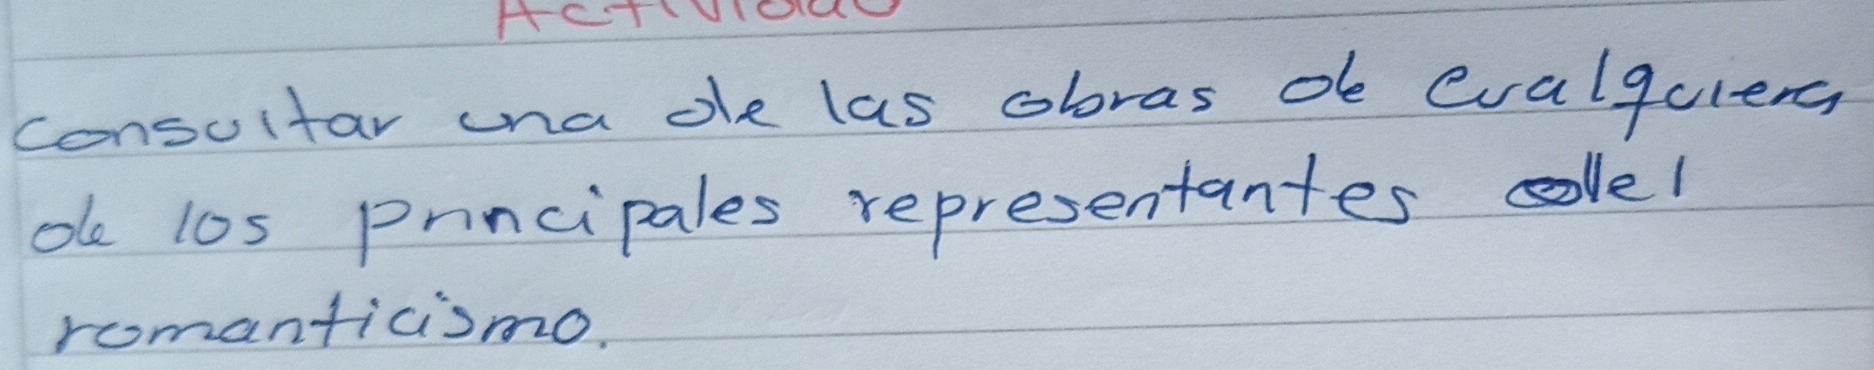 Actividad
consultar una de las obras de cualquiera
de los principales representantes del
romanticismo.